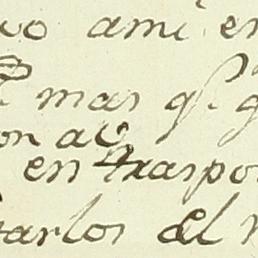 vo ami en
mas q.e g
on ao
en traspo
tarlos el